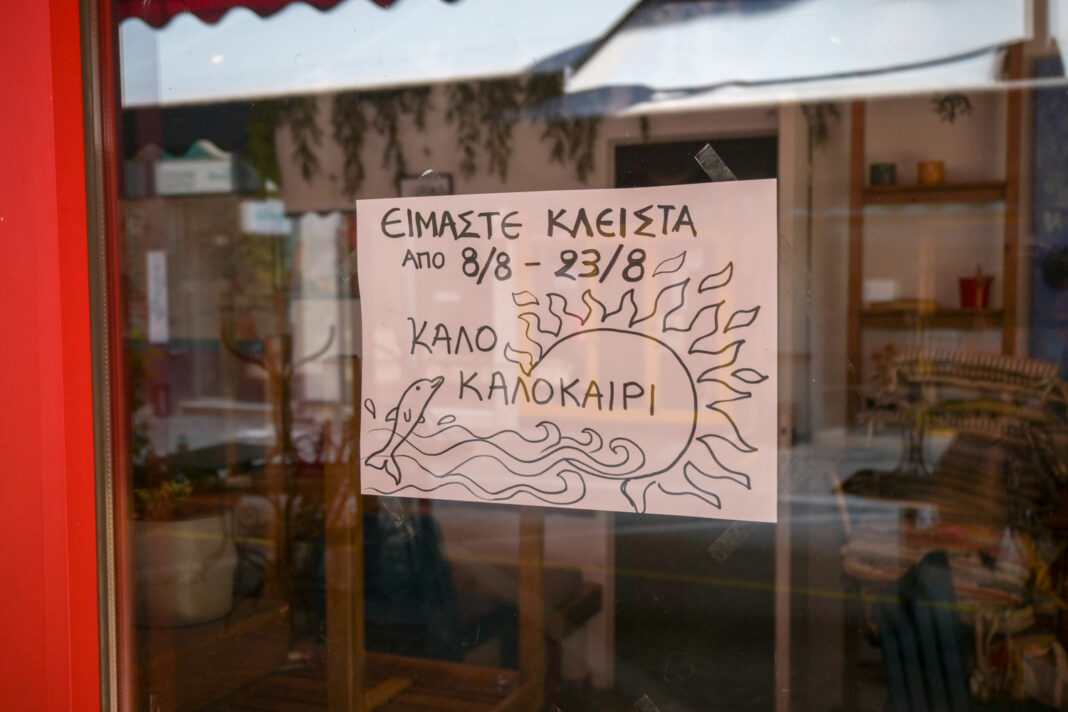 ΕΙΜΑΣΤΕ ΚΛΕΙΣΤΑ
ΑΠΟ 8/8 - 23/8
ΚΑΛΟ
ΚΑΛΟΚΑΙΡΙ